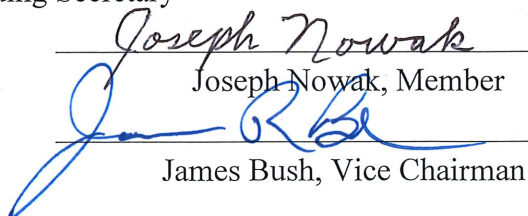 ing Secretary
Joseph Nowak
Joseph Nowak, Member
James Bush, Vice Chairman